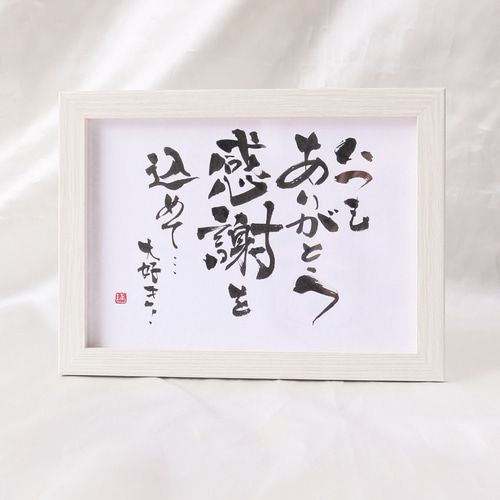 いつも
ありがとう
感謝を
込めて…
大好き!